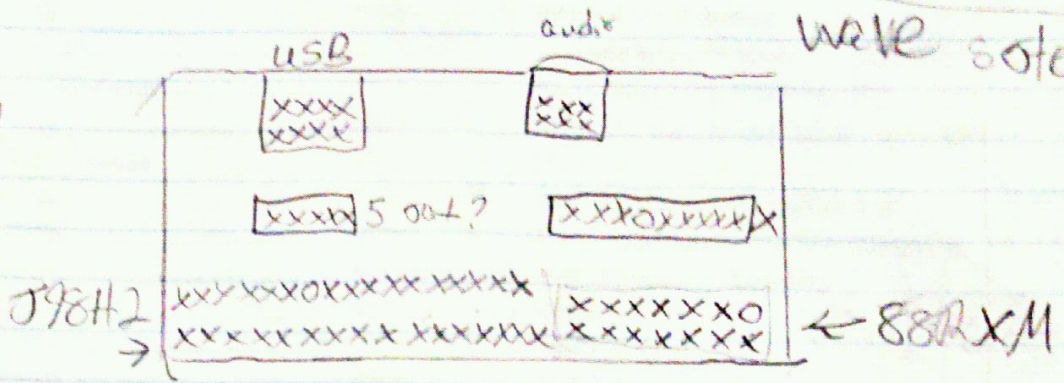 USB
audio
wave
XXXX
XXXX
XXX
XXX
XXXX 5 out?
XXXOXXXXXX
J98H2
XXXXXXOXXXXXXXXXX
XXXXXXXXXXXXXXXXX
XXXXXXO
XXXXXXX
← 88RXM
→